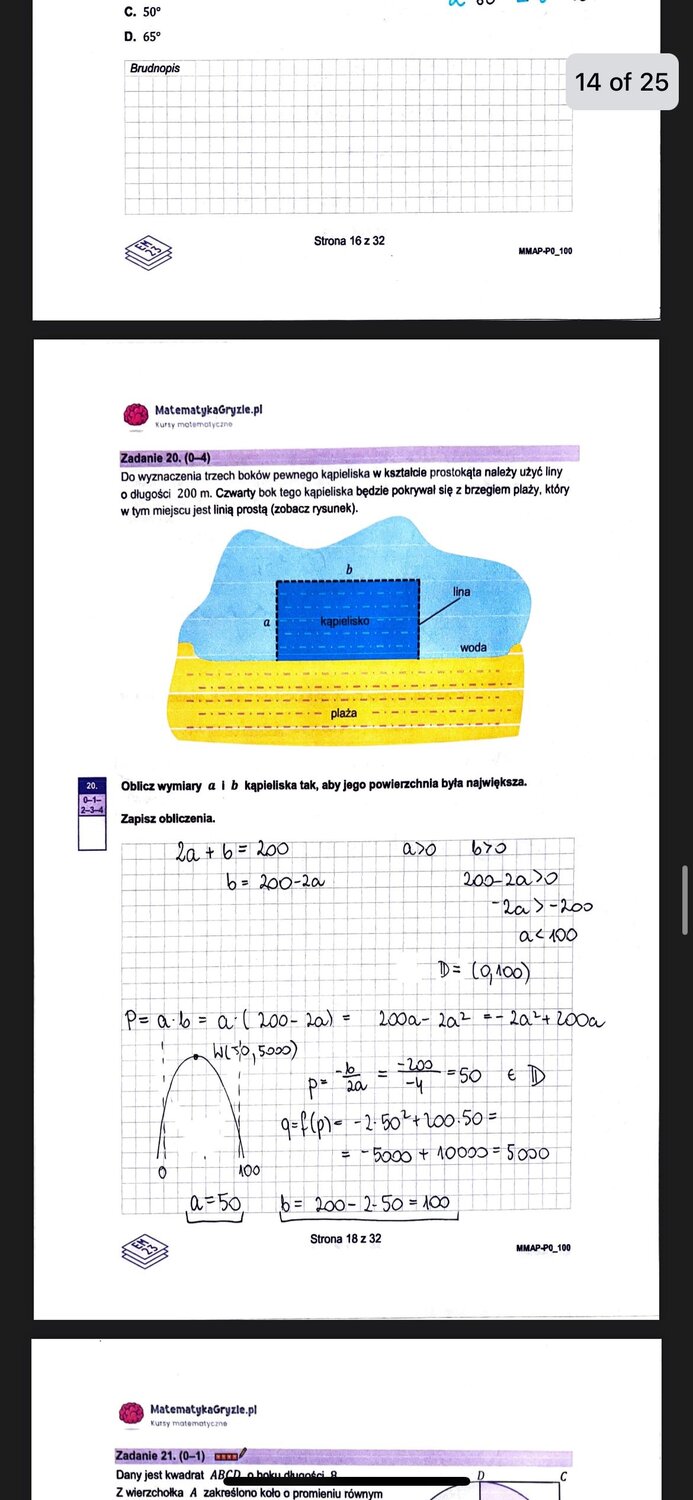 C. 50°
D. 65°
Brudnopis
14 of 25
Strona 16 z 32
MMAP-P0_100
MatematykaGryzie.pl
Kursy matematyczne
Zadanie 20. (0–4)
Do wyznaczenia trzech boków pewnego kąpieliska w kształcie prostokąta należy użyć liny
o długości 200 m. Czwarty bok tego kąpieliska będzie pokrywał się z brzegiem plaży, który
w tym miejscu jest linią prostą (zobacz rysunek).
b
lina
a
kąpielisko
woda
plaża
20.
0–1–
2–3–4
Oblicz wymiary a i b kąpieliska tak, aby jego powierzchnia była największa.
Zapisz obliczenia.
2a + b = 200 a>0 b>0
b = 200-2a 200-2a>0
-2a > -200
a < 100
D = (0,100)
P = a·b = a·(200-2a) = 200a - 2a² = -2a² + 200a
W(50, 5000)
p = -b/2a = -200/-4 = 50 ∈ D
q = f(p) = -2·50² + 200·50 =
= -5000 + 10000 = 5000
0 100
a = 50 b = 200 - 2·50 = 100
Strona 18 z 32
MMAP-P0_100
MatematykaGryzie.pl
Kursy matematyczne
Zadanie 21. (0–1)
Dany jest kwadrat ABCD o boku długości 8
D C
Z wierzchołka A zakreślono koło o promieniu równym